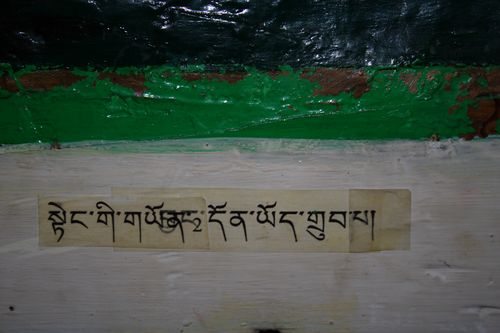 སྟེང་གི་གཡོན་2 དོན་ཡོད་གྲུབ་པ།